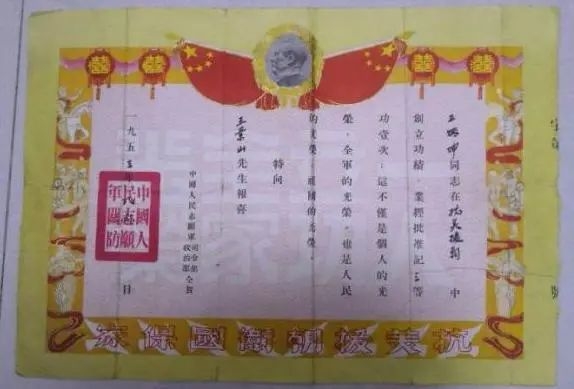 同志在抗美援朝中
創立功績,業經批准記三等
功壹次;這不僅是個人的光
榮,全軍的光榮,也是人民
的光榮,祖國的光榮。
特向
王業山先生報喜
中國人民志願軍
司令部
政治部
全賀
一九五三年
日
中國人
民志願
軍國防
抗美援朝衛國保家